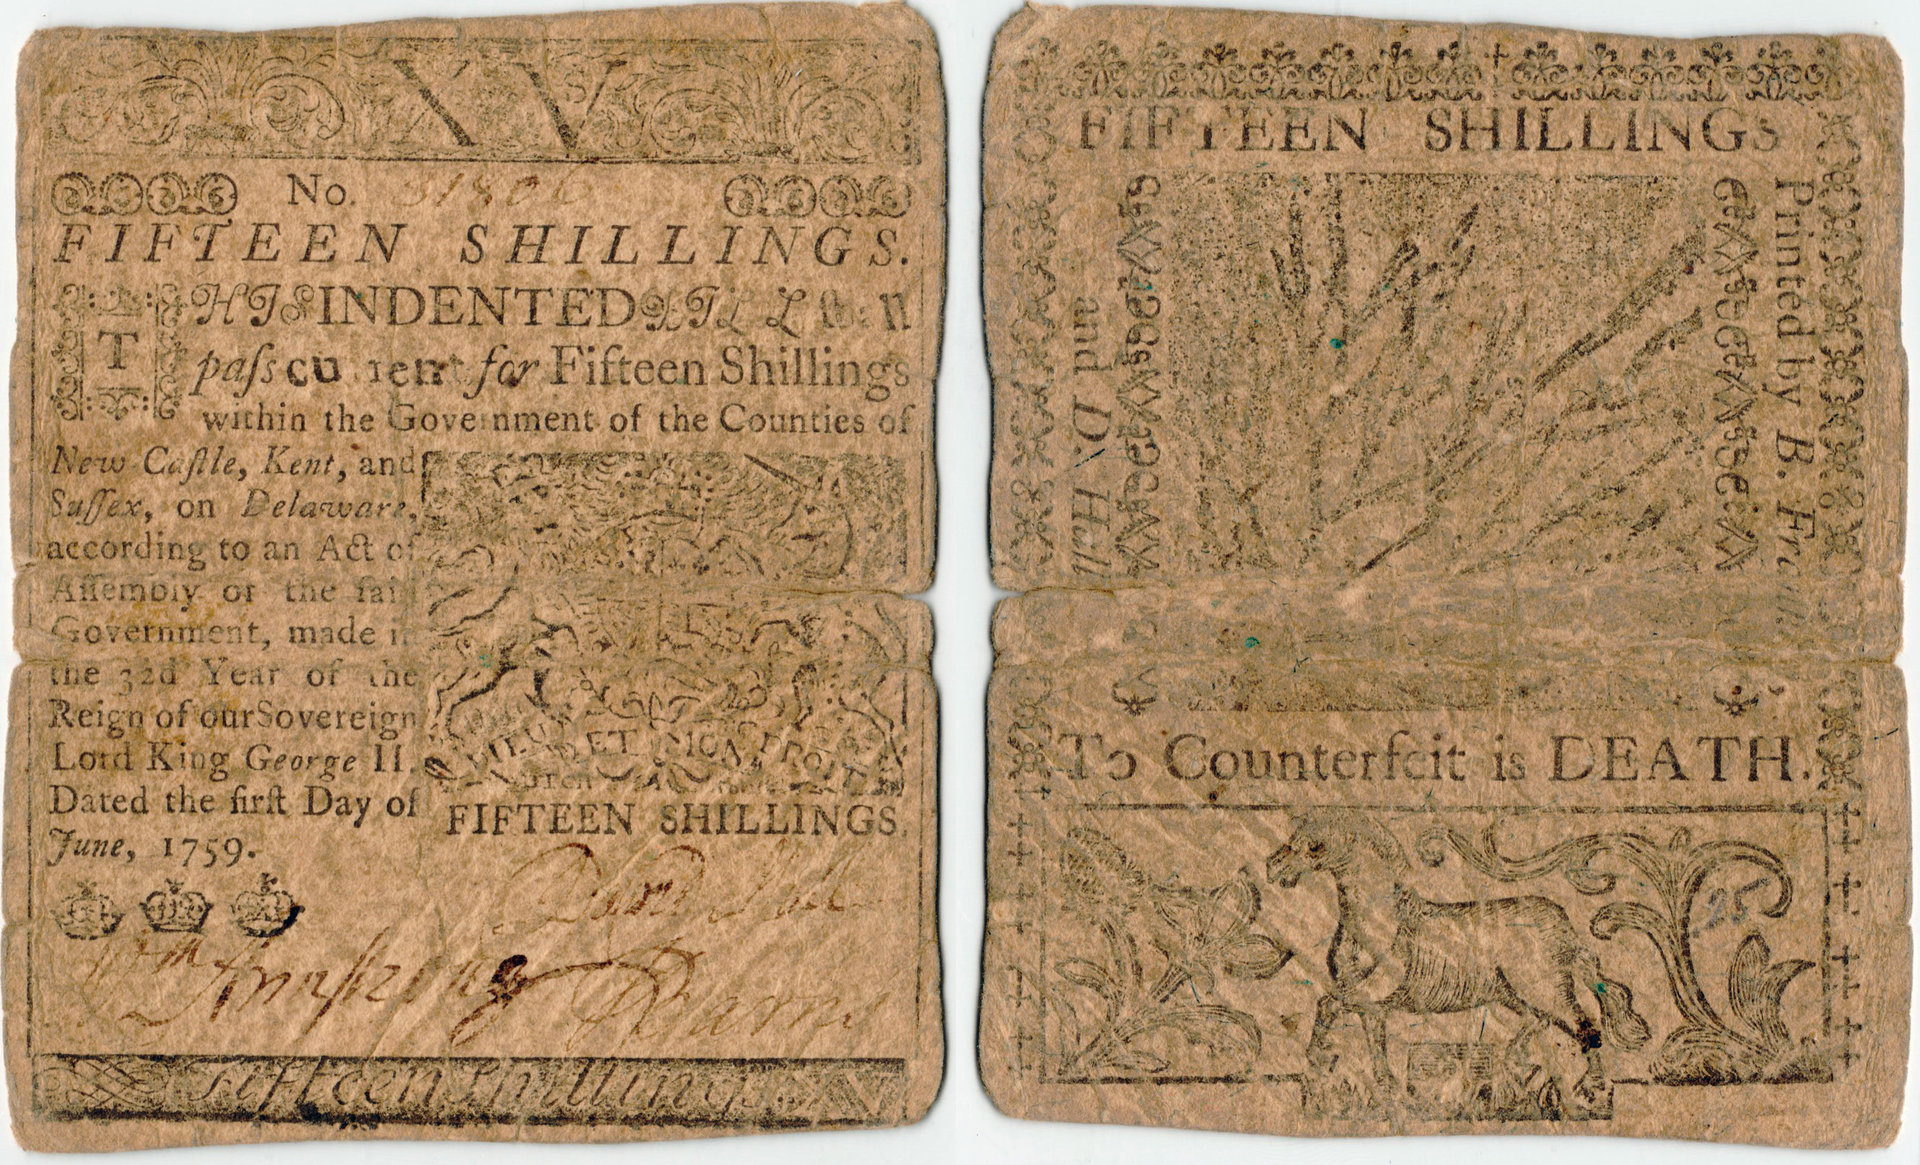 XV
No. 31806
FIFTEEN SHILLINGS.
THIS INDENTED BILL shall
paſs current for Fifteen Shillings
within the Government of the Counties of
New-Caſtle, Kent, and
Suſſex, on Delaware,
according to an Act of
Aſſembly of the ſaid
Government, made in
the 32d Year of the
Reign of our Sovereign
Lord King George II.
Dated the firſt Day of
June, 1759.
DIEU ET MON DROIT
FIFTEEN SHILLINGS.
David Hall
Wm Armstrong
Barns
Fifteen Shillings. XV
FIFTEEN SHILLINGS
Printed by B. Franklin
and D. Hall
To Counterfeit is DEATH.
25